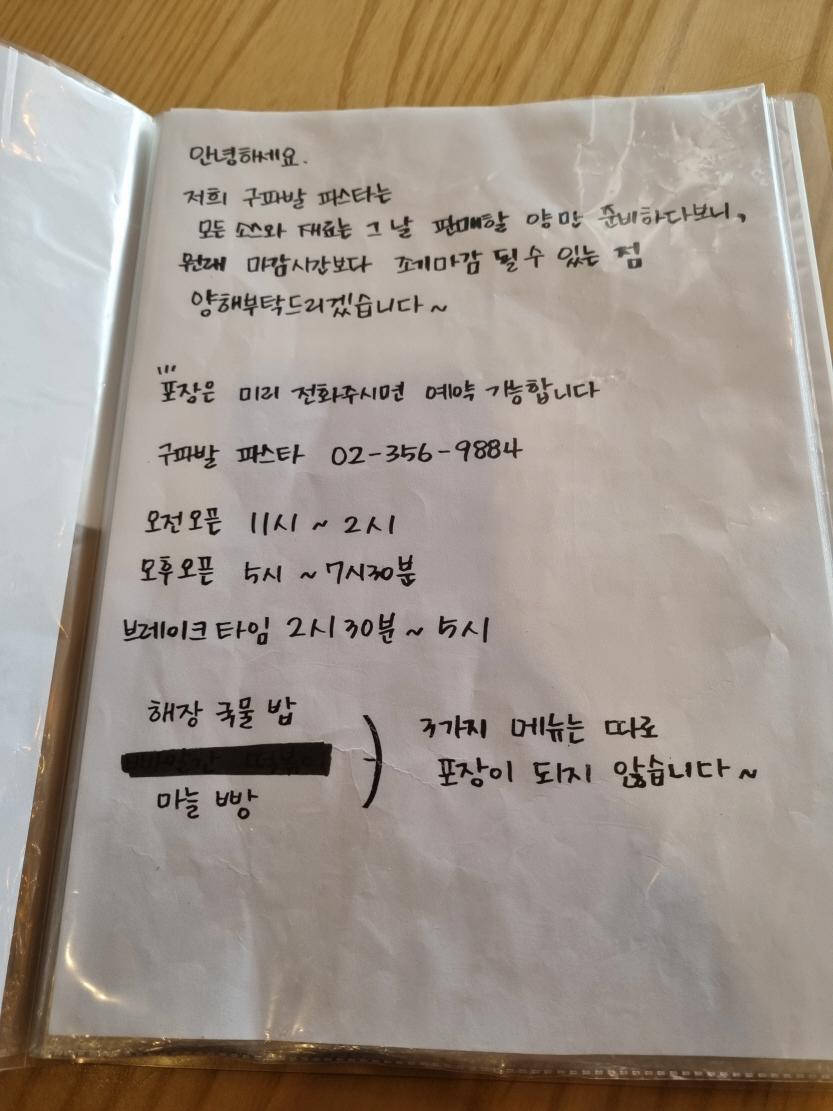 안녕하세요.
저희 구파발 파스타는
모든 소스와 재료는 그 날 판매할 양만 준비하다보니,
원래 마감시간보다 조기마감 될 수 있는 점
양해부탁드리겠습니다~
포장은 미리 전화주시면 예약 가능합니다
구파발 파스타 02-356-9884
오전오픈 11시 ~ 2시
오후오픈 5시 ~ 7시30분
브레이크타임 2시30분 ~ 5시
해장 국물 밥
마늘 빵
3가지 메뉴는 따로
포장이 되지 않습니다~